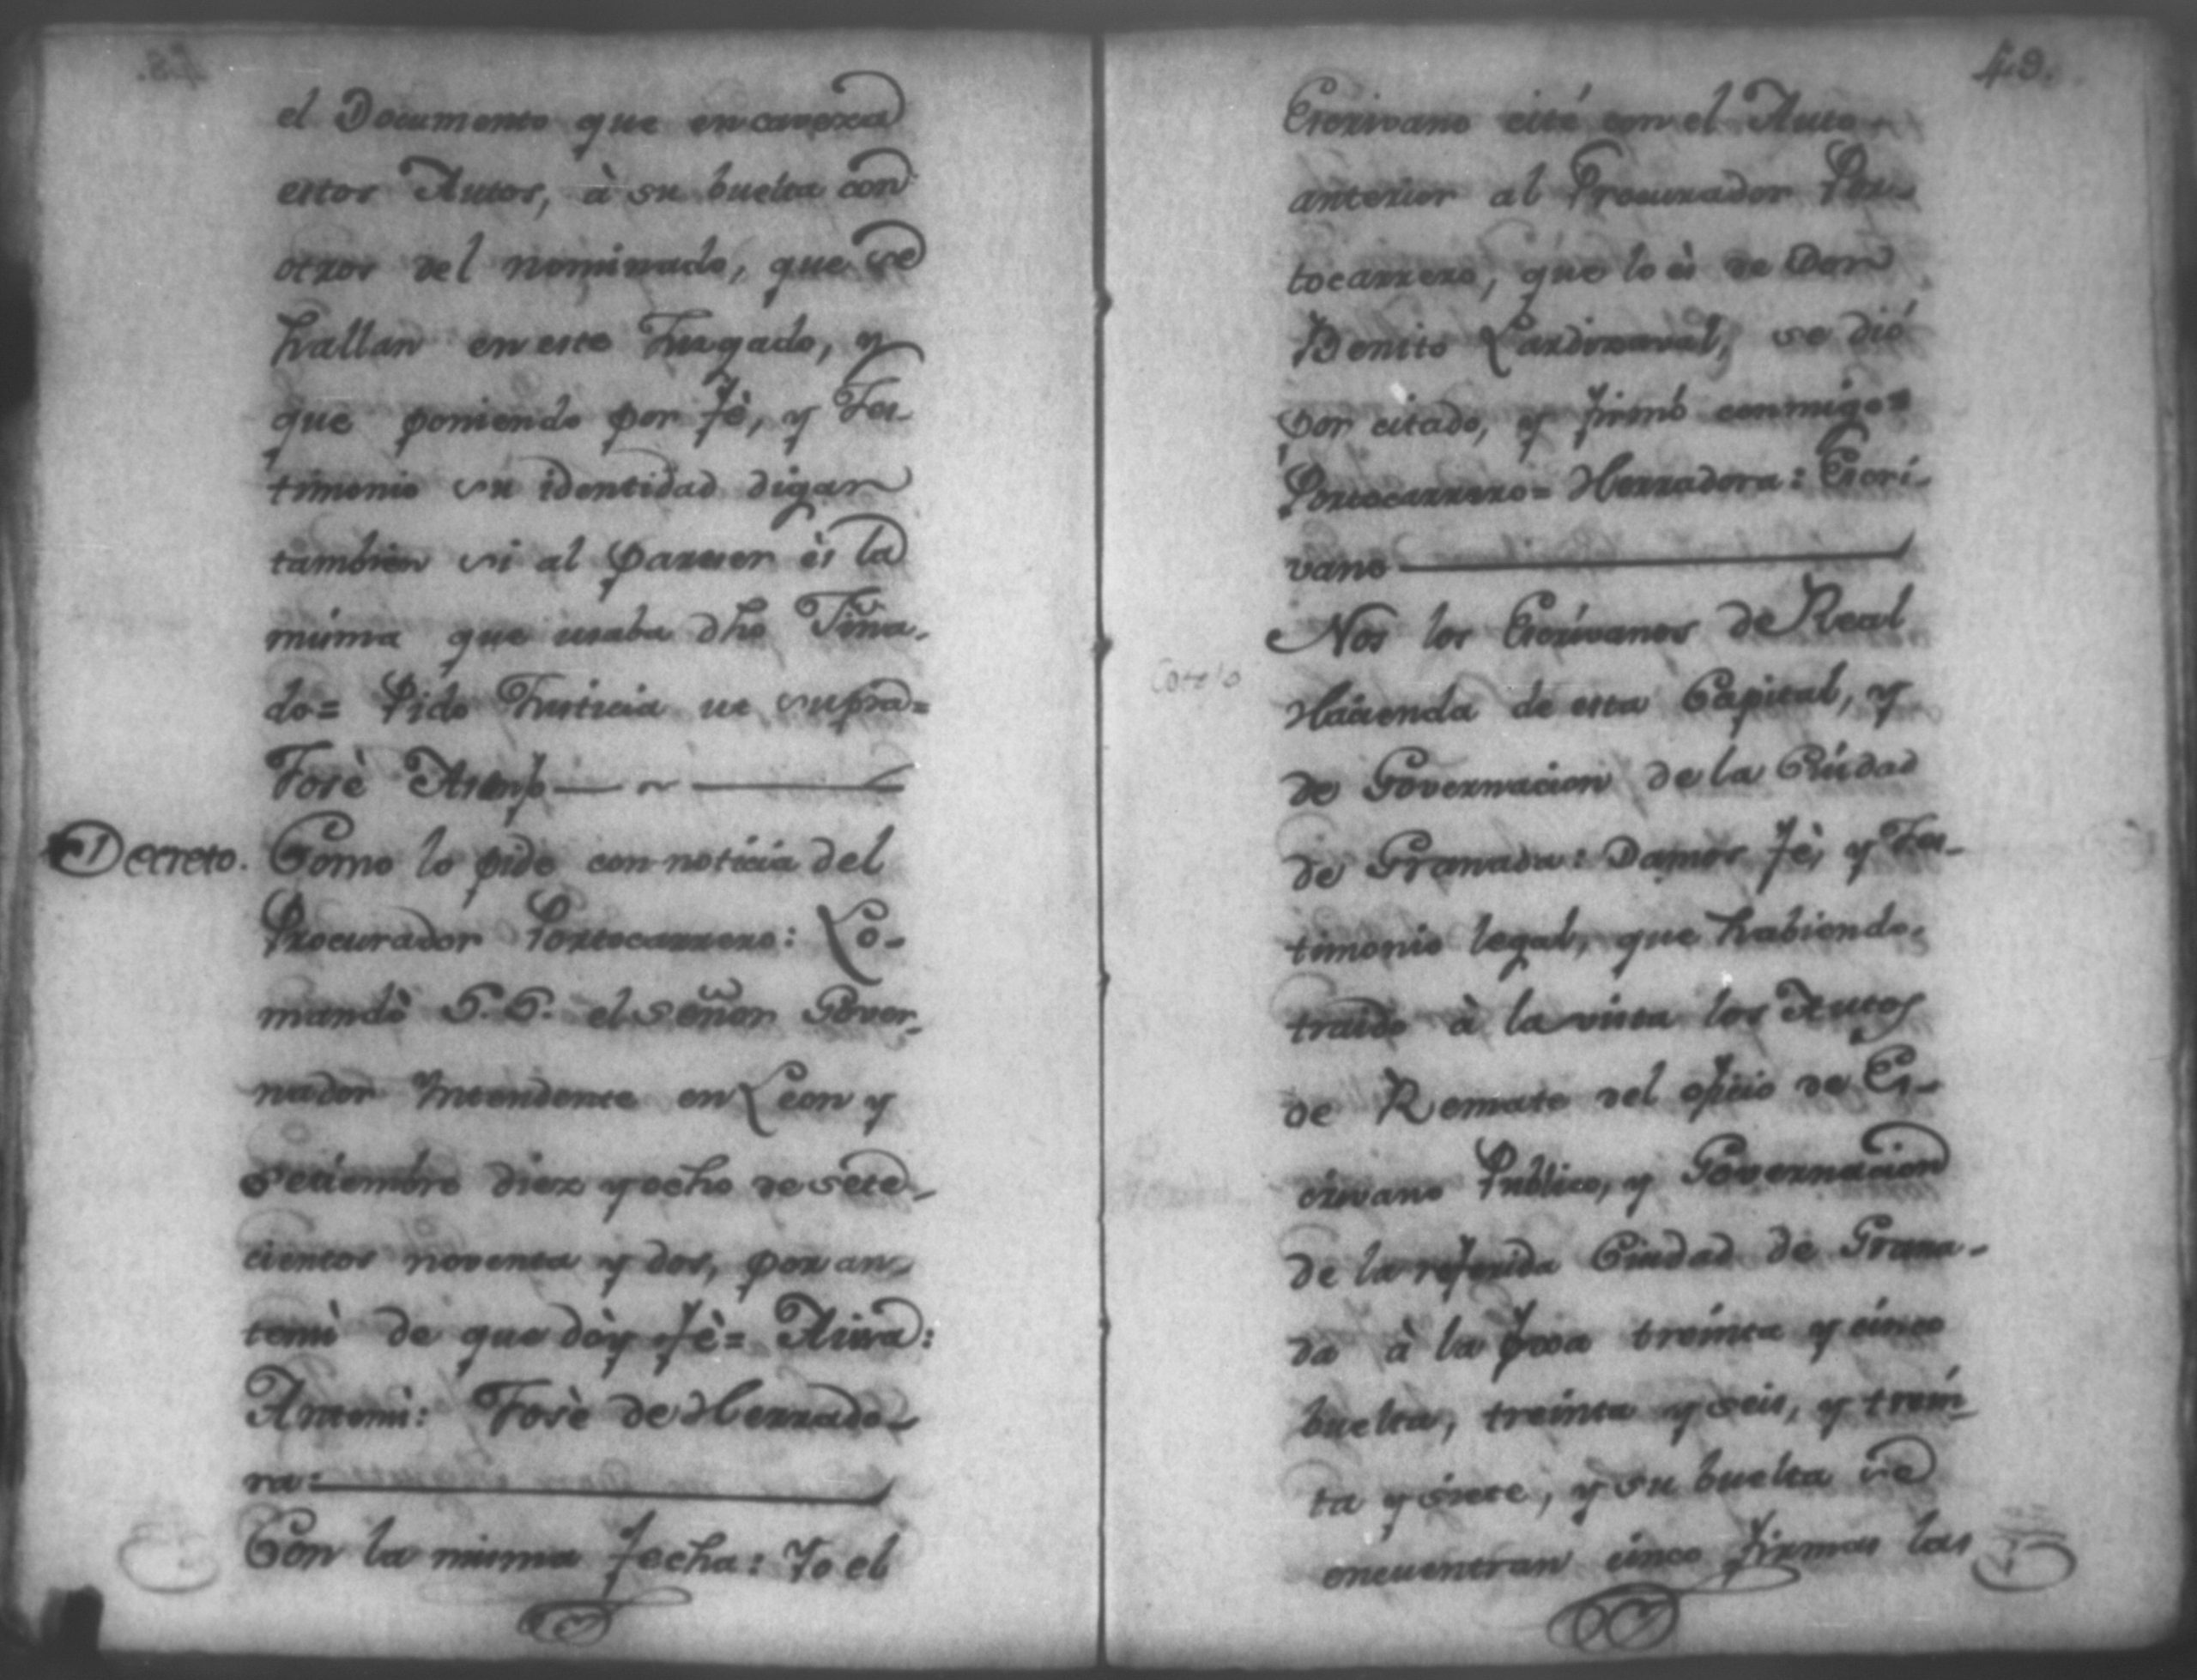 el Documento que encaveza
estos Autos, à su buelta con
otros del nominado, que se
hallan en este Juzgado, y
que poniendo por fè, y Tes-
timonio su identidad digan
tambien si al parecer ès la
misma que usaba dho Fina-
do= Pido Justicia ut supra=
Josè Asenjo
Decreto. Como lo pide con noticia del
Procurador Portocarrero: Lo-
mandò S.S. el señor Gover-
nador Intendente en Leon y
Setiembre diez y ocho de sete-
cientos noventa y dos, por an-
temì de que dòy fè=
Antemi: Josè de Herrado-
ra:
Con la misma fecha: Yo el
49.
Escrivano cité con el Auto
anterior al Procurador Por-
tocarrero, que lo ès de Don
Benito se dió
por citado, y firmò conmigo=
Portocarrero= Herradora: Escri-
vano
Nos los Escrivanos de Real
Hacienda de esta Capital, y
de Governacion de la Ciudad
de Granada: Damos fè, y Tes-
timonio legal, que habiendo
traido à la vista los Autos
de Remate del oficio de Es-
crivano Publico, y Governacion
de la referida Ciudad de Grana-
da à la foxa treinta y cinco
buelta, treinta y seis, y trein-
ta y siete, y su buelta se
encuentran cinco firmas las